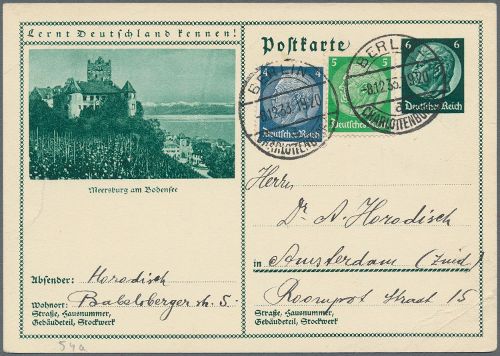 Lernt Deutschland kennen!
Meersburg am Bodensee
Postkarte
4
Deutsches Reich
5
Deutsches Reich
6 6
Deutsches Reich
BERLIN
-8.12.33.1920
CHARLOTTENBURG
BERLIN
-8.12.33.1920
a
CHARLOTTENBURG
Herrn
Dr. A. Horodisch
in Amsterdam (Zuid)
Roompot Straat 15
Straße, Hausnummer,
Gebäudeteil, Stockwerk
Absender: Horodisch
Wohnort: Babelsberger str. 5
Straße, Hausnummer,
Gebäudeteil, Stockwerk
54a